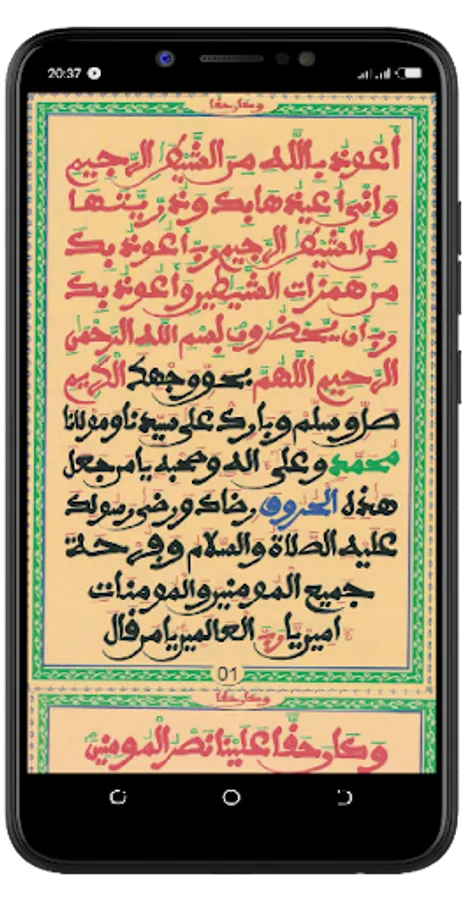 20:37
وكان حقا
أعوذ بالله من الشيطن الرجيم
وإنى أعيذها بك وذريتها
من الشيطن الرجيم رب أعوذ بك
من همزات الشيطين وأعوذ بك
رب أن يحضرون بسم الله الرحمن
الرحيم اللهم بحق وجهك الكريم
صل وسلم وبارك على سيدنا ومولانا
محمد وعلى اله وصحبه يا من جعل
هذه الحروف رضاك ورضى رسولك
عليه الصلاة والسلام وفرحة
جميع المومنين والمومنات
امين يا رب العالمين يا من قال
01
وكان حقا
وكان حقا علينا نصر المومنين